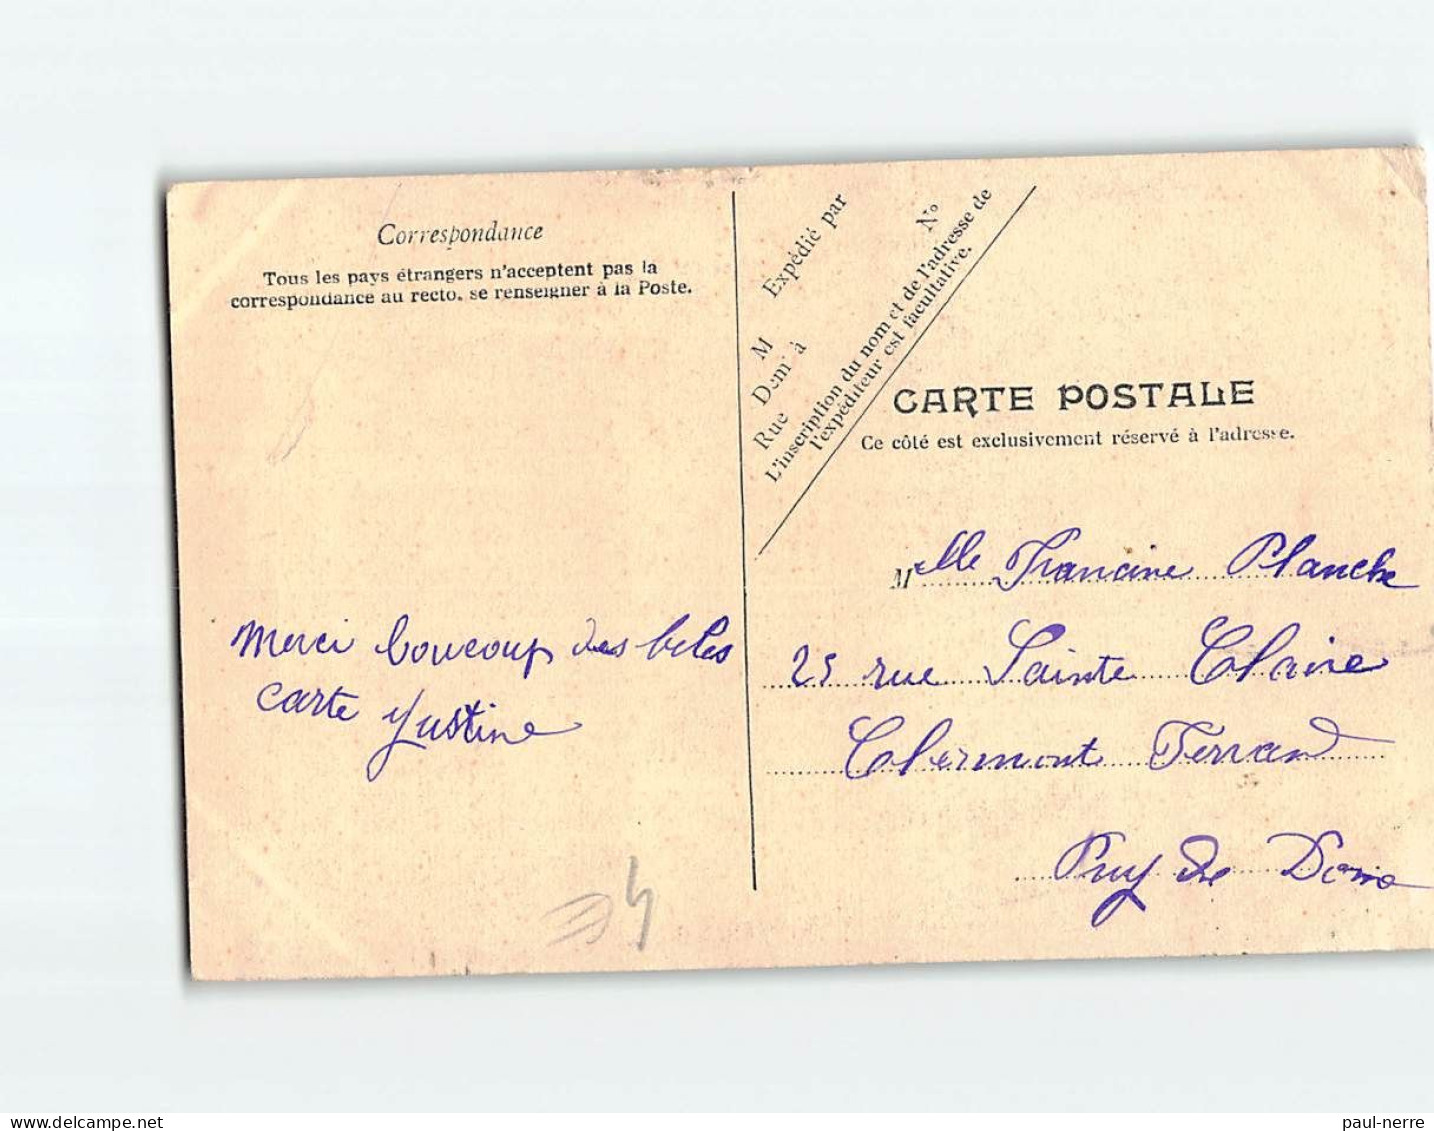 Correspondance
Tous les pays étrangers n'acceptent pas la
correspondance au recto. se renseigner à la Poste.
Merci boucoup des beles
carte Justine
Expédié par
M
Dem^t à
Rue
N°
L'inscription du nom et de l'adresse de
l'expéditeur est facultative.
CARTE POSTALE
Ce côté est exclusivement réservé à l'adresse.
Melle Francine Planche
25 rue Sainte Claire
Clermont Ferrand
Puy de Dome
delcampe.net
paul-nerre